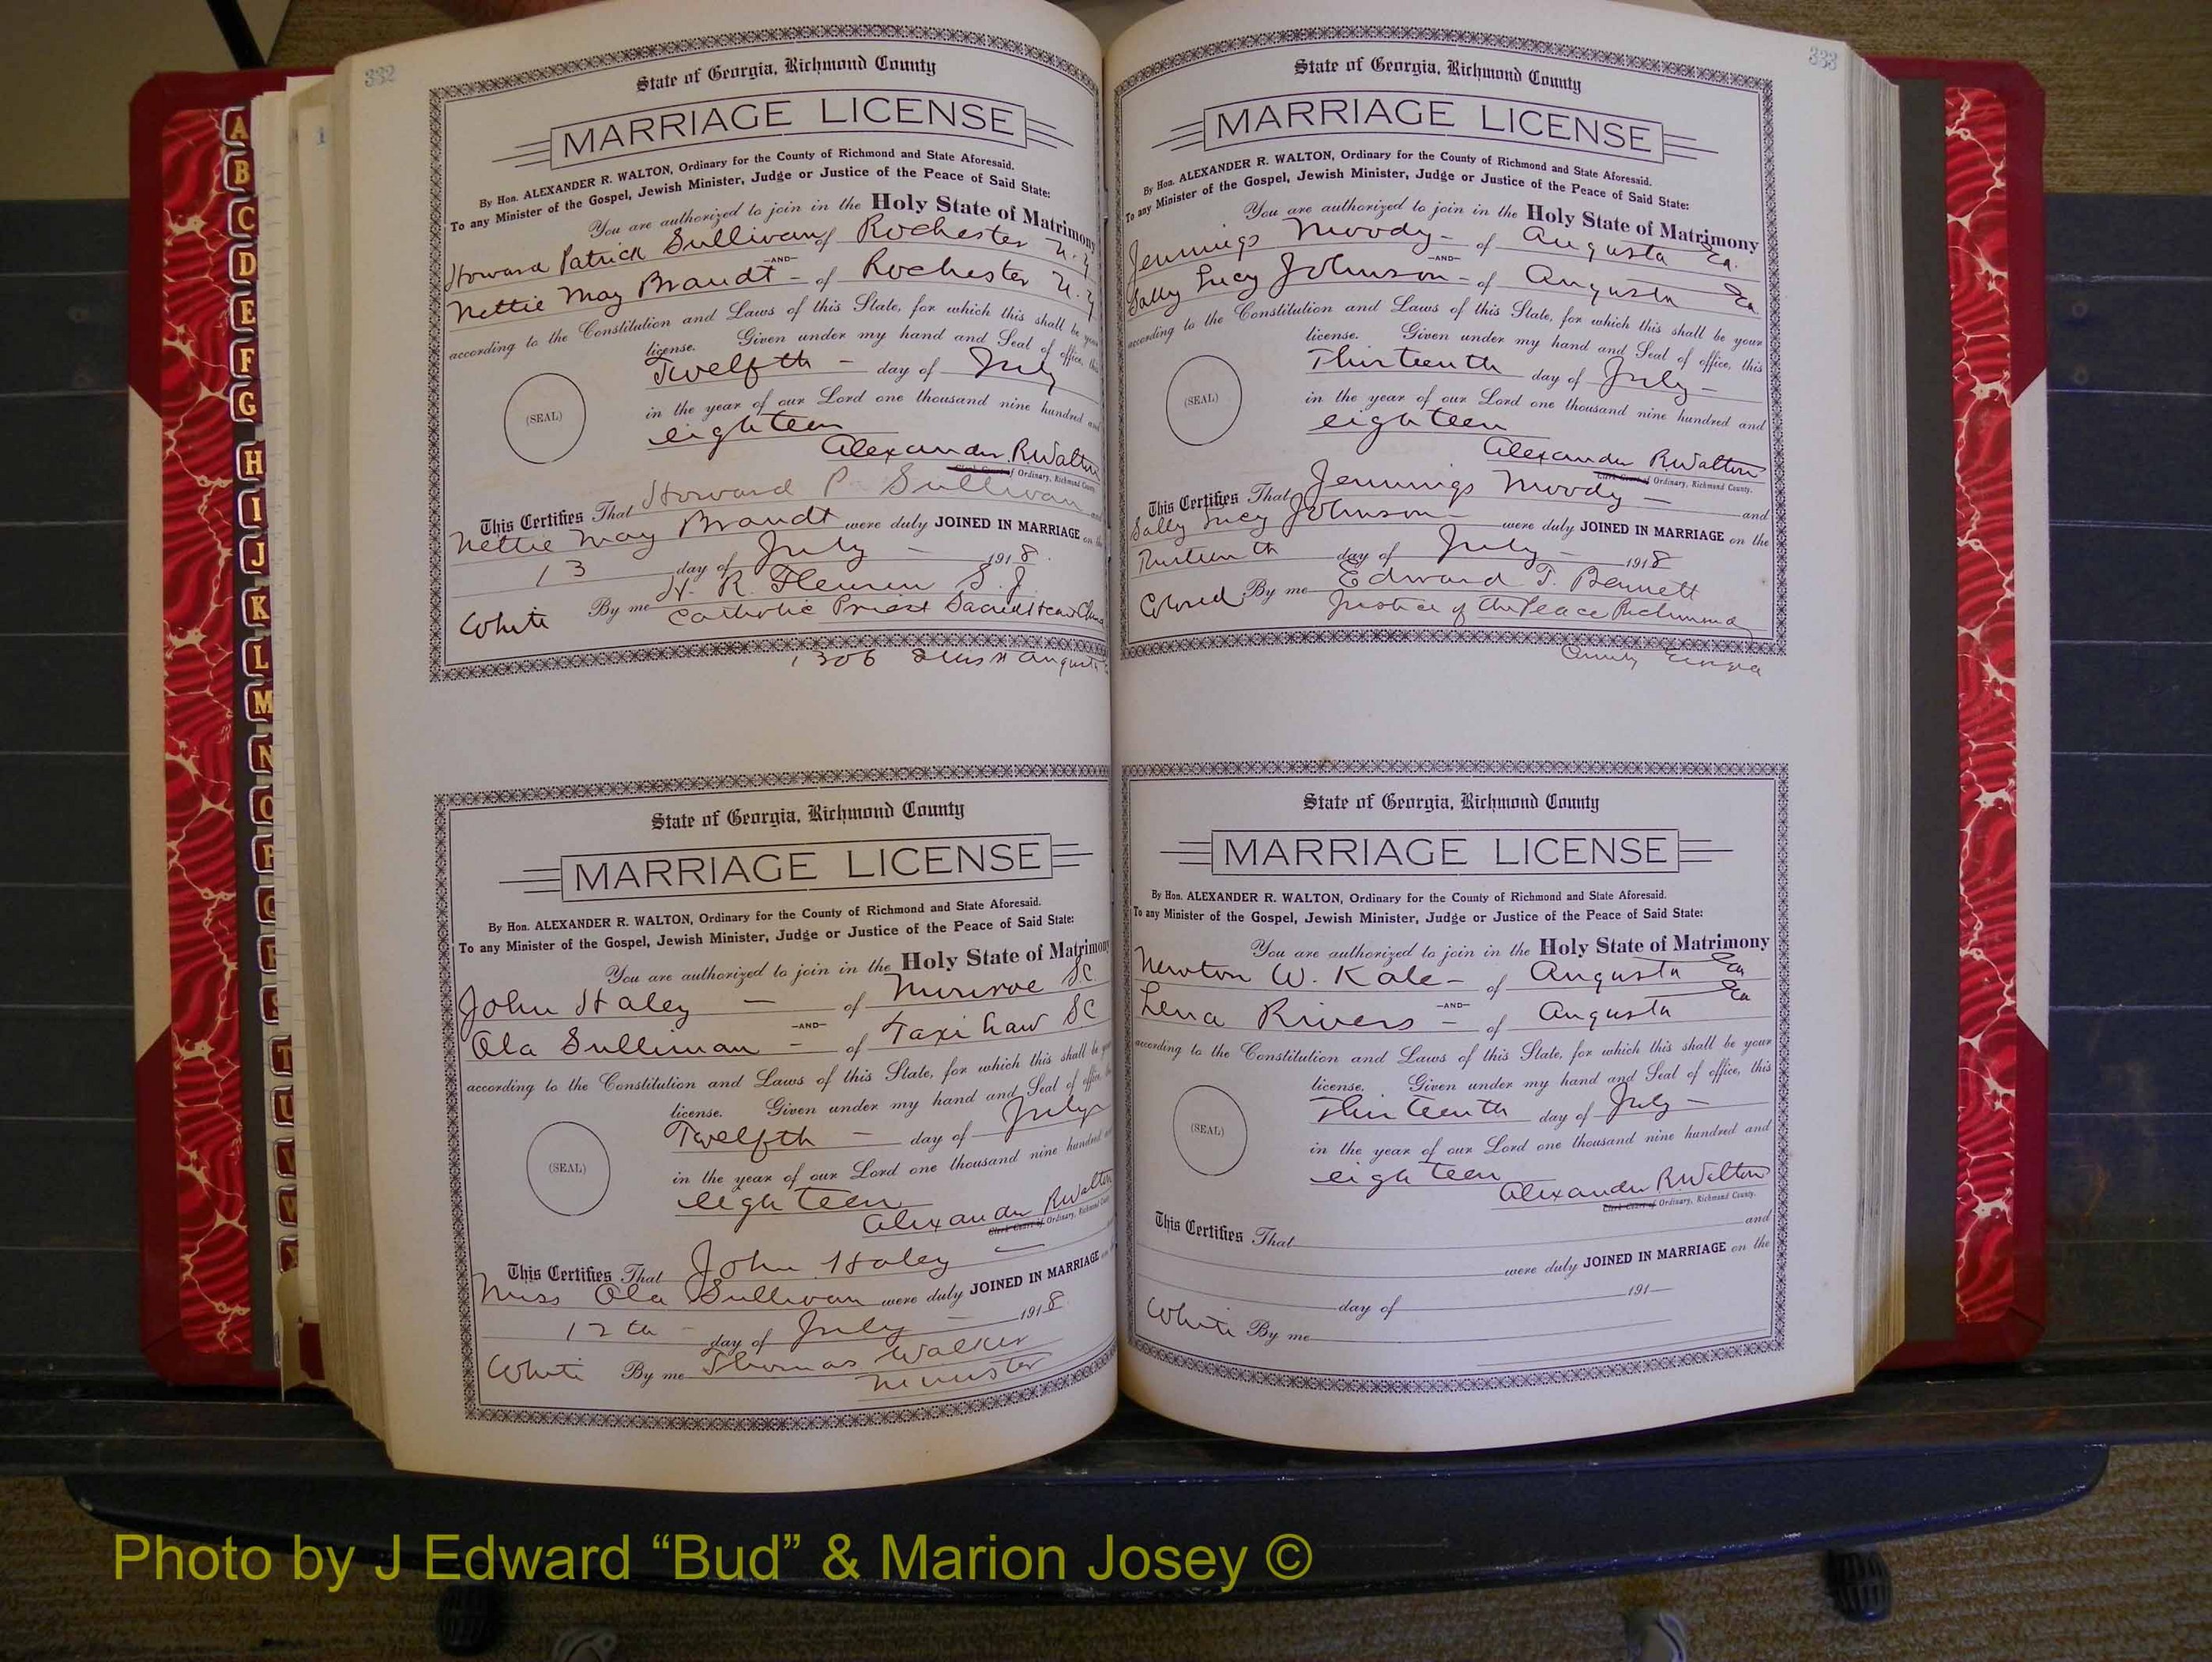 332
State of Georgia, Richmond County
MARRIAGE LICENSE
By Hon. ALEXANDER R. WALTON, Ordinary for the County of Richmond and State Aforesaid.
To any Minister of the Gospel, Jewish Minister, Judge or Justice of the Peace of Said State:
You are authorized to join in the Holy State of Matrimony
Howard Patrick Sullivan of Rochester N.Y
—AND—
Nettie May Brandt - of Rochester N.Y
according to the Constitution and Laws of this State, for which this shall be your
license. Given under my hand and Seal of office, this
Twelfth - day of July
(SEAL)
in the year of our Lord one thousand nine hundred and
eighteen
Alexander R Walton
Clerk Court of Ordinary, Richmond County
This Certifies That Howard P Sullivan and
Nettie May Brandt were duly JOINED IN MARRIAGE on the
13 day of July - 1918.
White By me R. S.J
Catholic Priest Sacred Heart
1306 Ellis st Augusta
State of Georgia, Richmond County
MARRIAGE LICENSE
By Hon. ALEXANDER R. WALTON, Ordinary for the County of Richmond and State Aforesaid.
To any Minister of the Gospel, Jewish Minister, Judge or Justice of the Peace of Said State:
You are authorized to join in the Holy State of Matrimony
John Haley - of Monroe S.C.
—AND—
Ola Sullivan - of SC
according to the Constitution and Laws of this State, for which this shall be your
license. Given under my hand and Seal of office, this
Twelfth - day of July
(SEAL)
in the year of our Lord one thousand nine hundred and
eighteen
Alexander R Walton
Clerk Court of Ordinary, Richmond County
This Certifies That John Haley - and
Miss Ola Sullivan were duly JOINED IN MARRIAGE on the
12th - day of July - 1918
White By me Thomas Walker
Minister
333
State of Georgia, Richmond County
MARRIAGE LICENSE
By Hon. ALEXANDER R. WALTON, Ordinary for the County of Richmond and State Aforesaid.
To any Minister of the Gospel, Jewish Minister, Judge or Justice of the Peace of Said State:
You are authorized to join in the Holy State of Matrimony
Jennings Moody - of Augusta Ga.
—AND—
Sally Lucy Johnson - of Augusta Ga
according to the Constitution and Laws of this State, for which this shall be your
license. Given under my hand and Seal of office, this
Thirteenth day of July -
(SEAL)
in the year of our Lord one thousand nine hundred and
eighteen
Alexander R. Walton
Clerk Court of Ordinary, Richmond County.
This Certifies That Jennings Moody - and
Sally Lucy Johnson - were duly JOINED IN MARRIAGE on the
Thirteenth day of July - 1918
Colored By me Edward T. Bennett
Justice of the Peace Richmond
County Georgia
State of Georgia, Richmond County
MARRIAGE LICENSE
By Hon. ALEXANDER R. WALTON, Ordinary for the County of Richmond and State Aforesaid.
To any Minister of the Gospel, Jewish Minister, Judge or Justice of the Peace of Said State:
You are authorized to join in the Holy State of Matrimony
Newton W. Kale - of Augusta Ga
—AND—
Lena Rivers - of Augusta Ga
according to the Constitution and Laws of this State, for which this shall be your
license. Given under my hand and Seal of office, this
Thirteenth day of July -
(SEAL)
in the year of our Lord one thousand nine hundred and
eighteen
Alexander R Walton
Clerk Court of Ordinary, Richmond County.
This Certifies That and
were duly JOINED IN MARRIAGE on the
day of 191
White By me
A
B
C
D
E
F
G
H
I
J
K
L
M
N
O
P
Q
R
S
T
U
V
W
Photo by J Edward “Bud” & Marion Josey ©